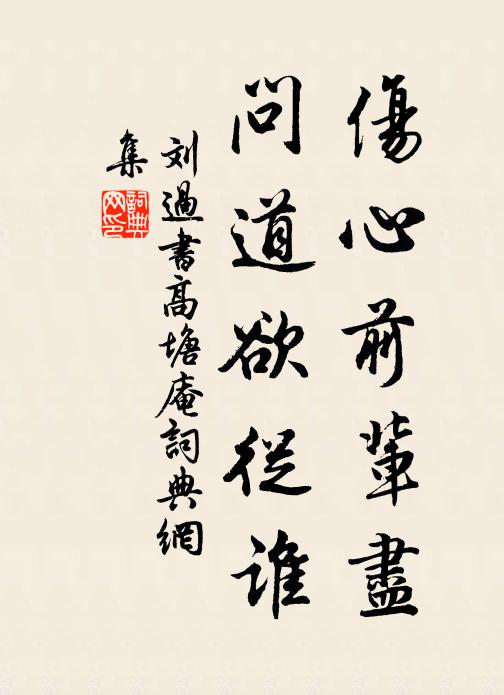 傷心前輩盡
問道欲從誰
刘過書高塘庵詞典網
集
詞典
网印